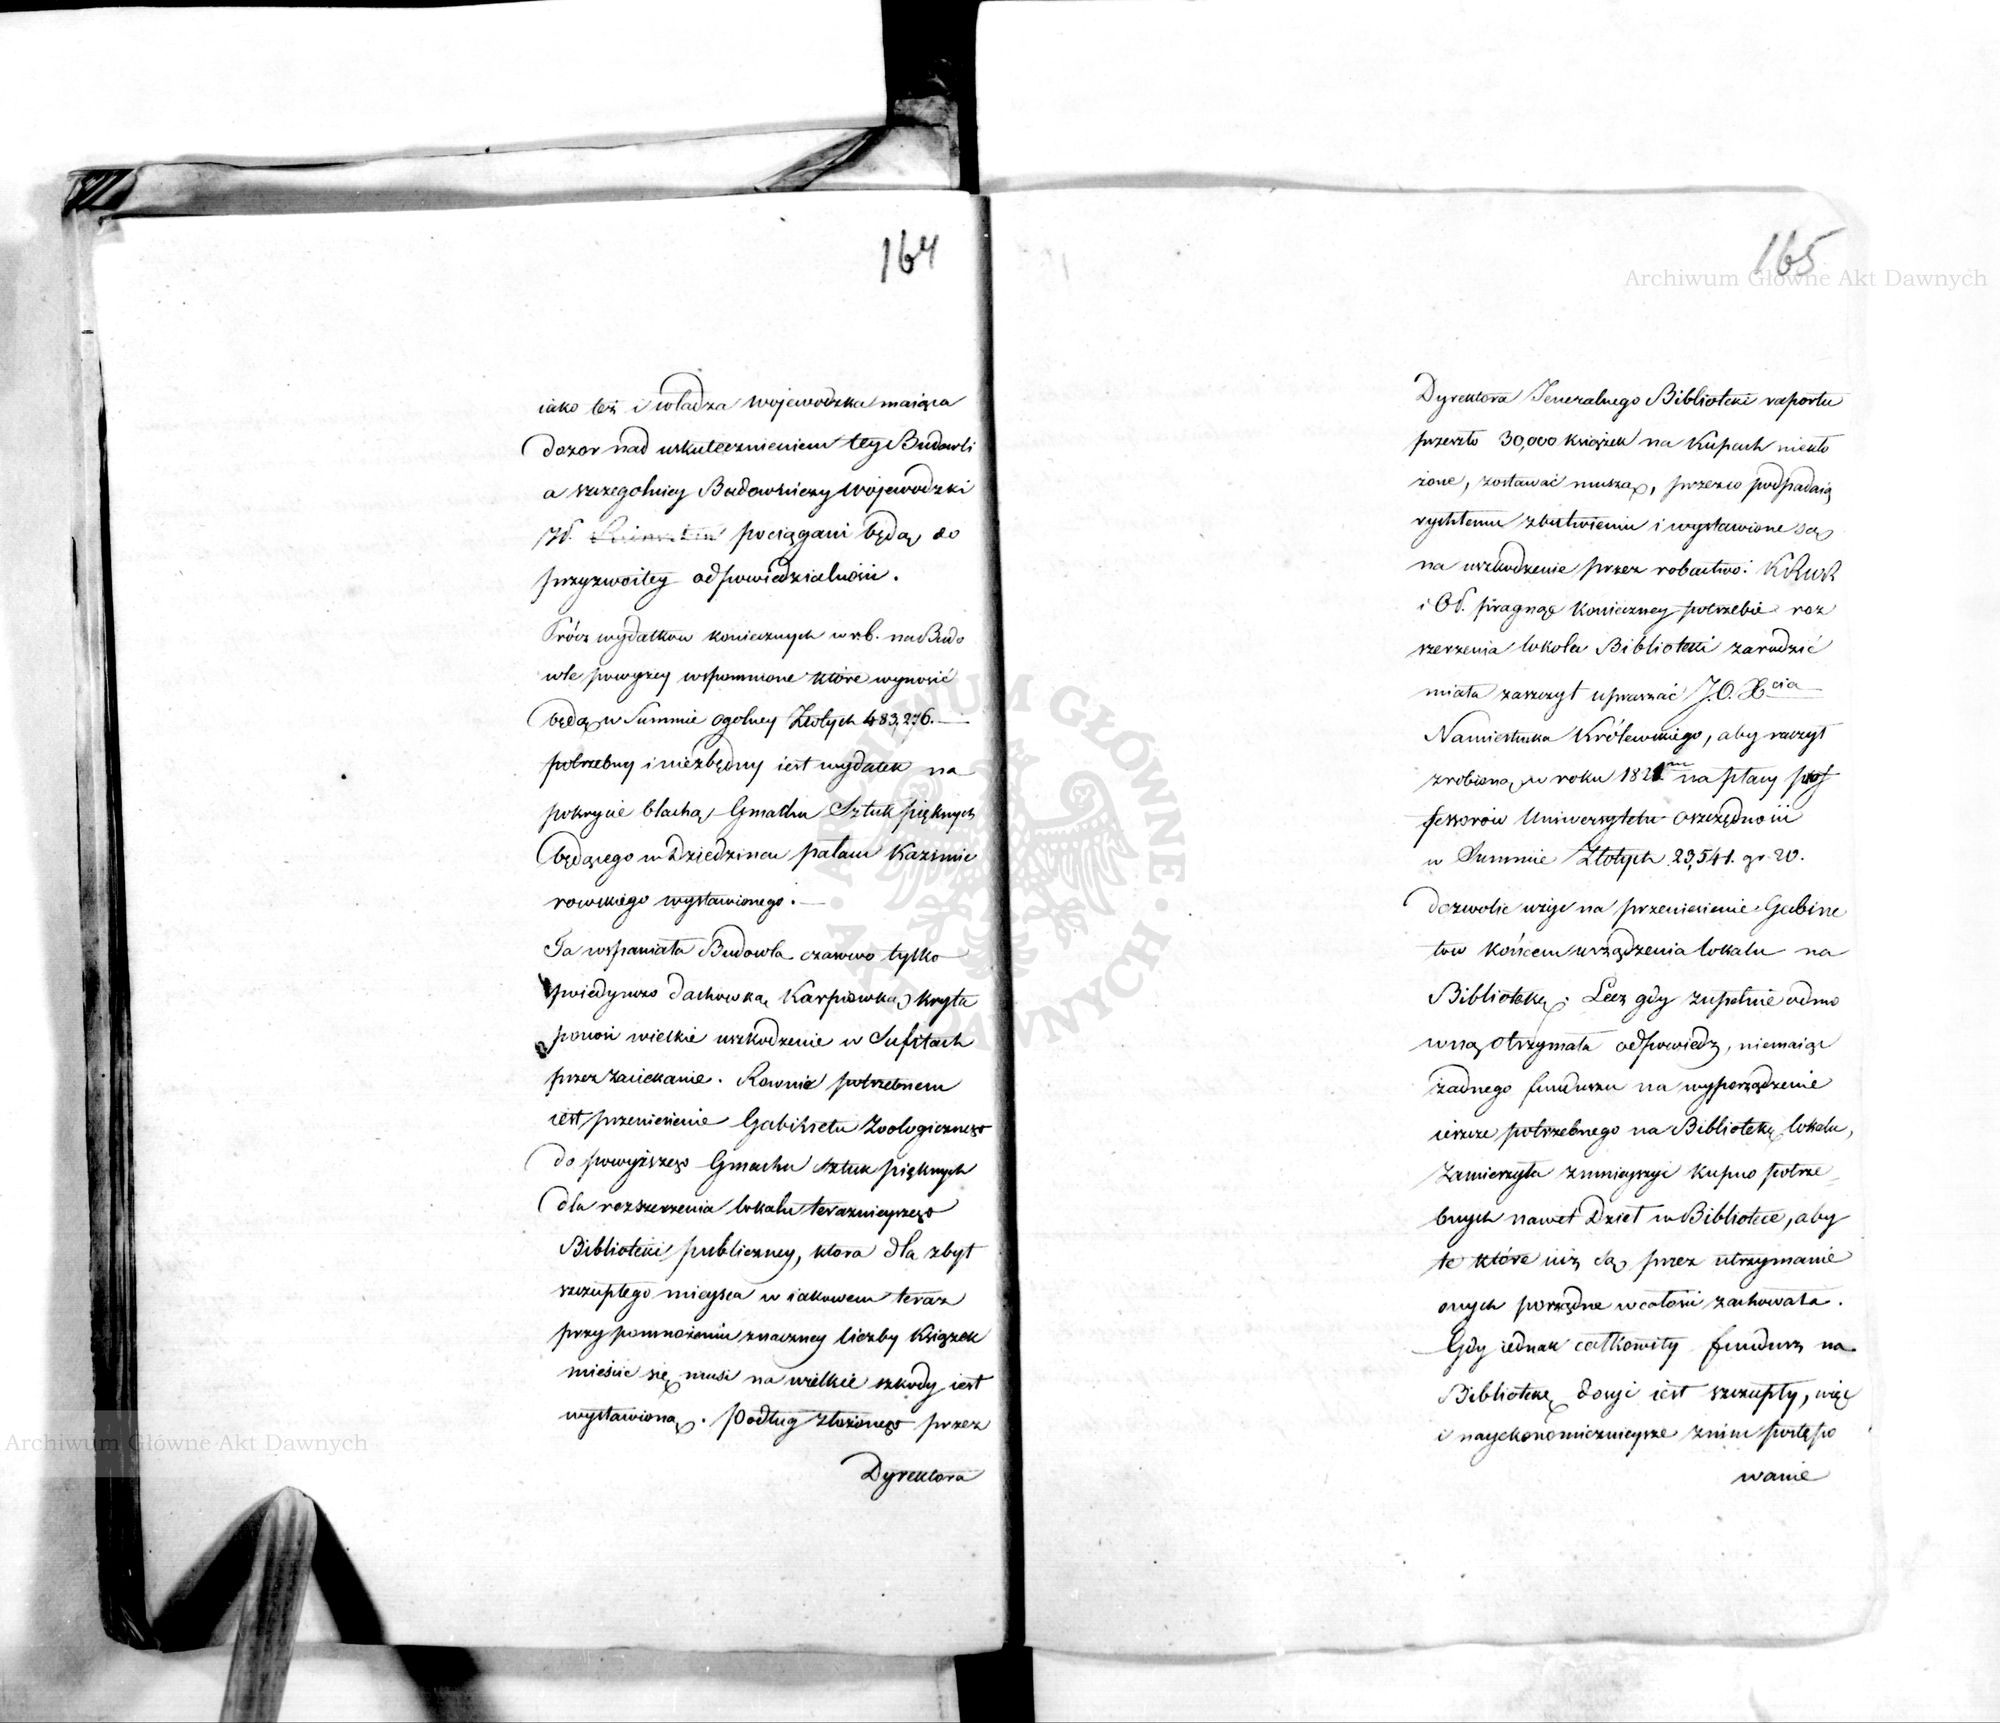 164
iako też i władza Wojewodzka maiąca
dozor nad uskutecznieniem tey Budowli
a szczegolniey Budowniczy Wojewodzki
pociągani będą do
przyzwoitey odpowiedzialności.
Prócz wydatków koniecznych w r.b. na Budo
wle powyżey wspomnione które wynosić
będą w Summie ogolney Złotych 483,276.
potrzebny i niezbędny iest wydatek na
pokrycie blachą Gmachu Sztuk pięknych
będącego w Dziedzincu pałacu Kazimie
rowskiego wystawionego.
Ta wspaniała Budowla czasowo tylko
poiedynczo dachowką Karpiowką kryta
ponosi wielkie uszkodzenie w Sufitach
przez zaciekanie. Rownie potrzebnem
iest przeniesienie Gabinetu Zoologicznego
do powyższego Gmachu sztuk pięknych
dla rozszerzenia lokalu teraznieyszego
Biblioteki publiczney, ktora dla zbyt
szczupłego mieysca w iakowem teraz
przy pomnożeniu znaczney liczby Książek
mieścić się musi na wielkie szkody iest
wystawioną. Podług złożonego przez
Dyrektora
165
Dyrektora Jeneralnego Biblioteki raportu
przeszło 30,000 książek na Kupach nieuło
żone, zostawać muszą, przezco podpadaią
rychłemu zbutwieniu i wystawione są
na uszkodzenie przez robactwo. K.R.W.R.
i O.P. pragnąc konieczney potrzebie roz
szerzenia lokalu Biblioteki zaradzić
miała zaszczyt upraszać J.O. Xcia
Namiestnika Królewskiego, aby raczył
zrobioną w roku 1821m na płacy prof
fessorów Uniwersytetu oszczędności
w Summie Złotych 23,541. gr. 20.
dozwolić użyć na przeniesienie Gabine
tow końcem urządzenia lokalu na
Bibliotekę. Lecz gdy zupełnie odmo
wną otrzymała odpowiedz, niemaiąc
żadnego funduszu na wyporządzenie
ieszcze potrzebnego na Bibliotekę lokalu,
zamierzyła zmnieyszyć kupno potrze
bnych nawet Dzieł w Bibliotece, aby
te które iuż są przez utrzymanie
onych porządne w całości zachowała.
Gdy iednak całkowity fundusz na
Bibliotekę dosyć iest szczupły, więc
i nayekonomicznieysze z nim postępo
wanie
Archiwum Główne Akt Dawnych
Archiwum Główne Akt Dawnych
ARCHIWUM GŁÓWNE · AKT DAWNYCH ·